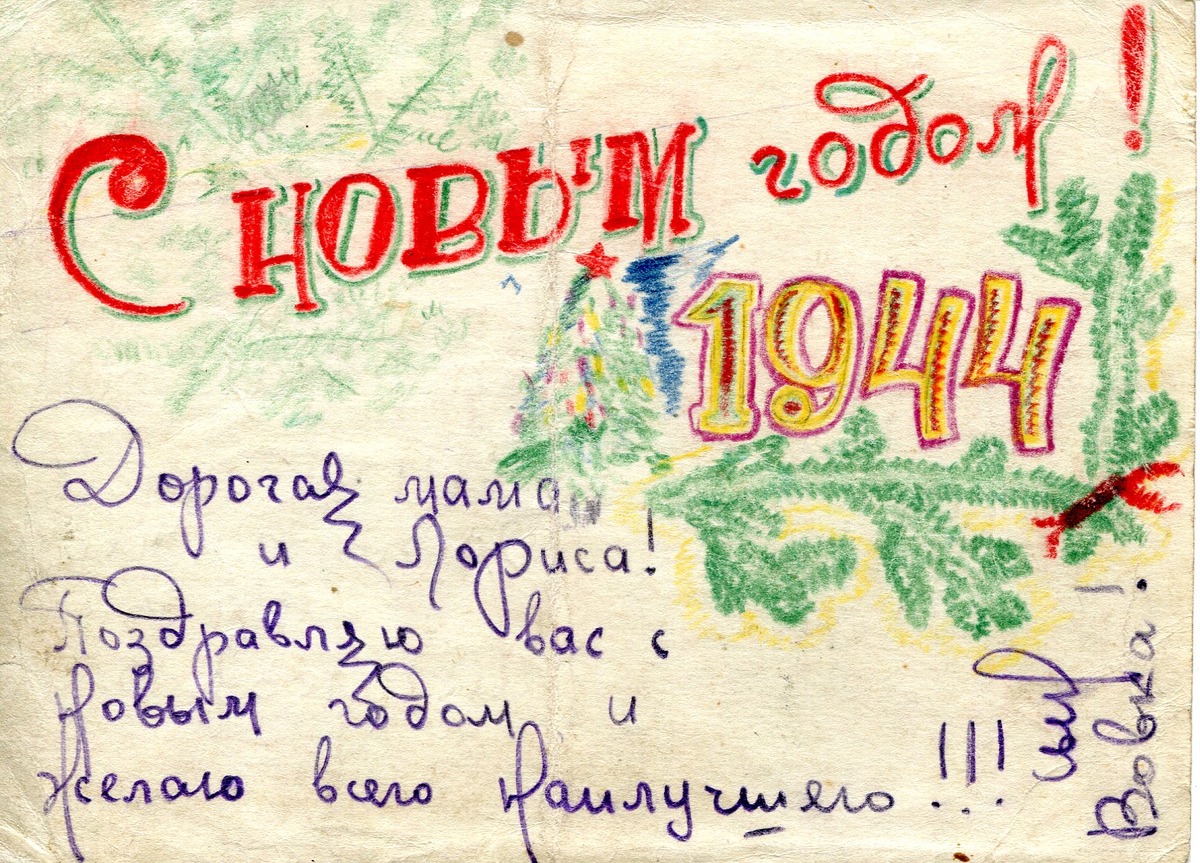 С НОВЫМ годом!
1944
Дорогая мама
и Лориса!
Поздравляю вас с
Новым годом и
желаю всего Наилучшего!!!
Вовка!